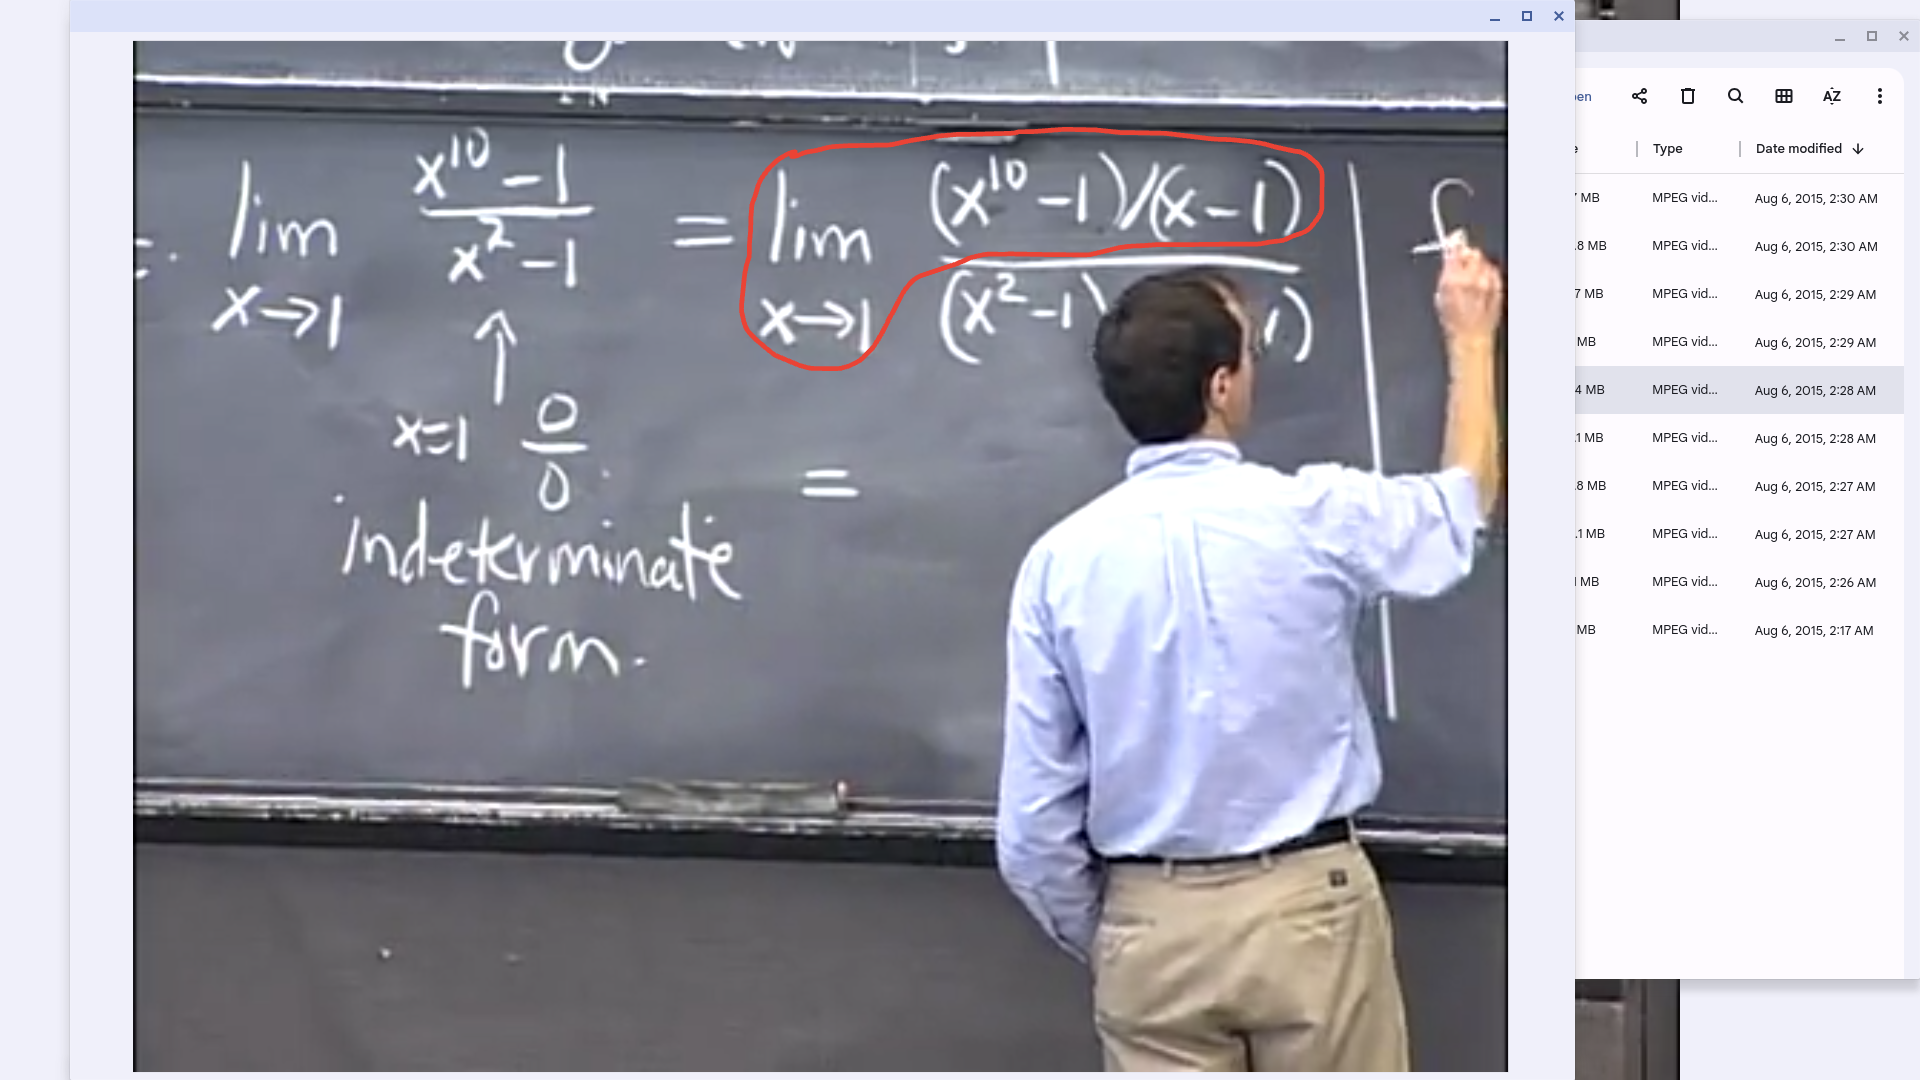 lim x→1 (x^10 − 1)/(x^2 − 1) = lim x→1 (x^10 − 1)/(x − 1)
(x^2 − 1) 1)
x=1 0/0 =
indeterminate
form.
f
Type Date modified
MB MPEG vid... Aug 6, 2015, 2:30 AM
.8 MB MPEG vid... Aug 6, 2015, 2:30 AM
7 MB MPEG vid... Aug 6, 2015, 2:29 AM
MB MPEG vid... Aug 6, 2015, 2:29 AM
4 MB MPEG vid... Aug 6, 2015, 2:28 AM
.1 MB MPEG vid... Aug 6, 2015, 2:28 AM
.8 MB MPEG vid... Aug 6, 2015, 2:27 AM
.1 MB MPEG vid... Aug 6, 2015, 2:27 AM
MB MPEG vid... Aug 6, 2015, 2:26 AM
MB MPEG vid... Aug 6, 2015, 2:17 AM